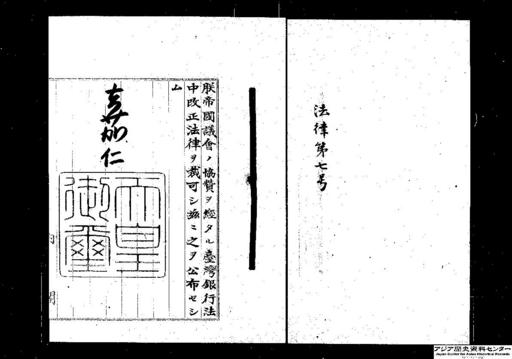 法律第七号
朕帝國議會ノ協贊ヲ經タル臺灣銀行法
中改正法律ヲ裁可シ茲ニ之ヲ公布セシ
ム
嘉仁
天皇
御璽
アジア歴史資料センター
Japan Center for Asian Historical Records